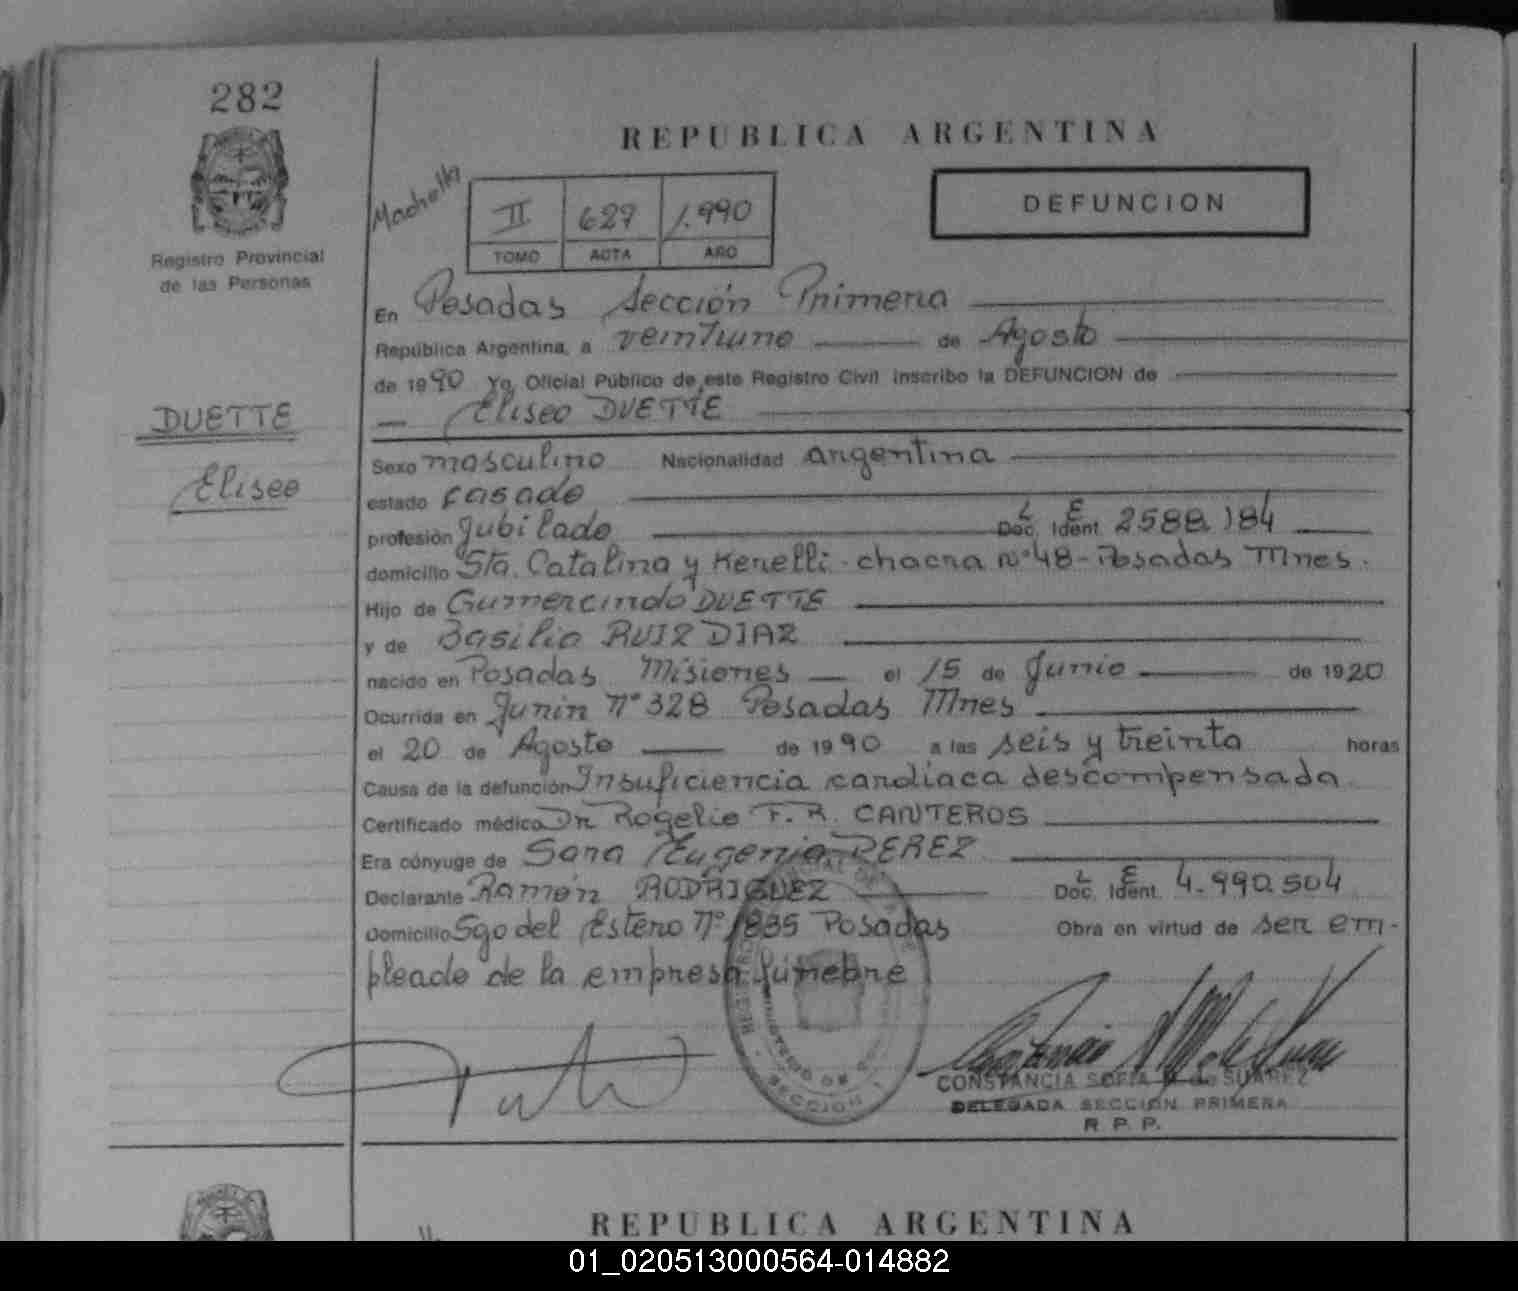 282
REPUBLICA ARGENTINA
Registro Provincial
de las Personas
II 627 1.990
TOMO ACTA AÑO
DEFUNCION
En Posadas Sección Primera
República Argentina, a veintiuno de Agosto
de 1990 Yo, Oficial Público de este Registro Civil inscribo la DEFUNCION de
Eliseo DUETTE
DUETTE
Eliseo
Sexo masculino Nacionalidad argentina
estado casado
profesión Jubilado Doc. L Ident. E 2588.184
domicilio Sta. Catalina y Kerelli - chacra nº 48 - Posadas Mnes.
Hijo de Gumercindo DUETTE
y de Basilia RUIZ DIAZ
nacido en Posadas Misiones el 15 de Junio de 1920
Ocurrida en Junin Nº 328 Posadas Mnes
el 20 de Agosto de 1990 a las seis y treinta horas
Causa de la defunción Insuficiencia cardiaca descompensada
Certificado médico Dr Rogelio F. R. CANTEROS
Era cónyuge de Sara Eugenia PEREZ
Declarante Ramón RODRIGUEZ Doc. L Ident. E 4.990.504
Domicilio Sgo del Estero Nº 1835 Posadas Obra en virtud de ser em-
pleado de la empresa fúnebre
CONSTANCIA SOFIA de SUAREZ
DELEGADA SECCION PRIMERA
R. P. P.
REPUBLICA ARGENTINA
01_020513000564-014882